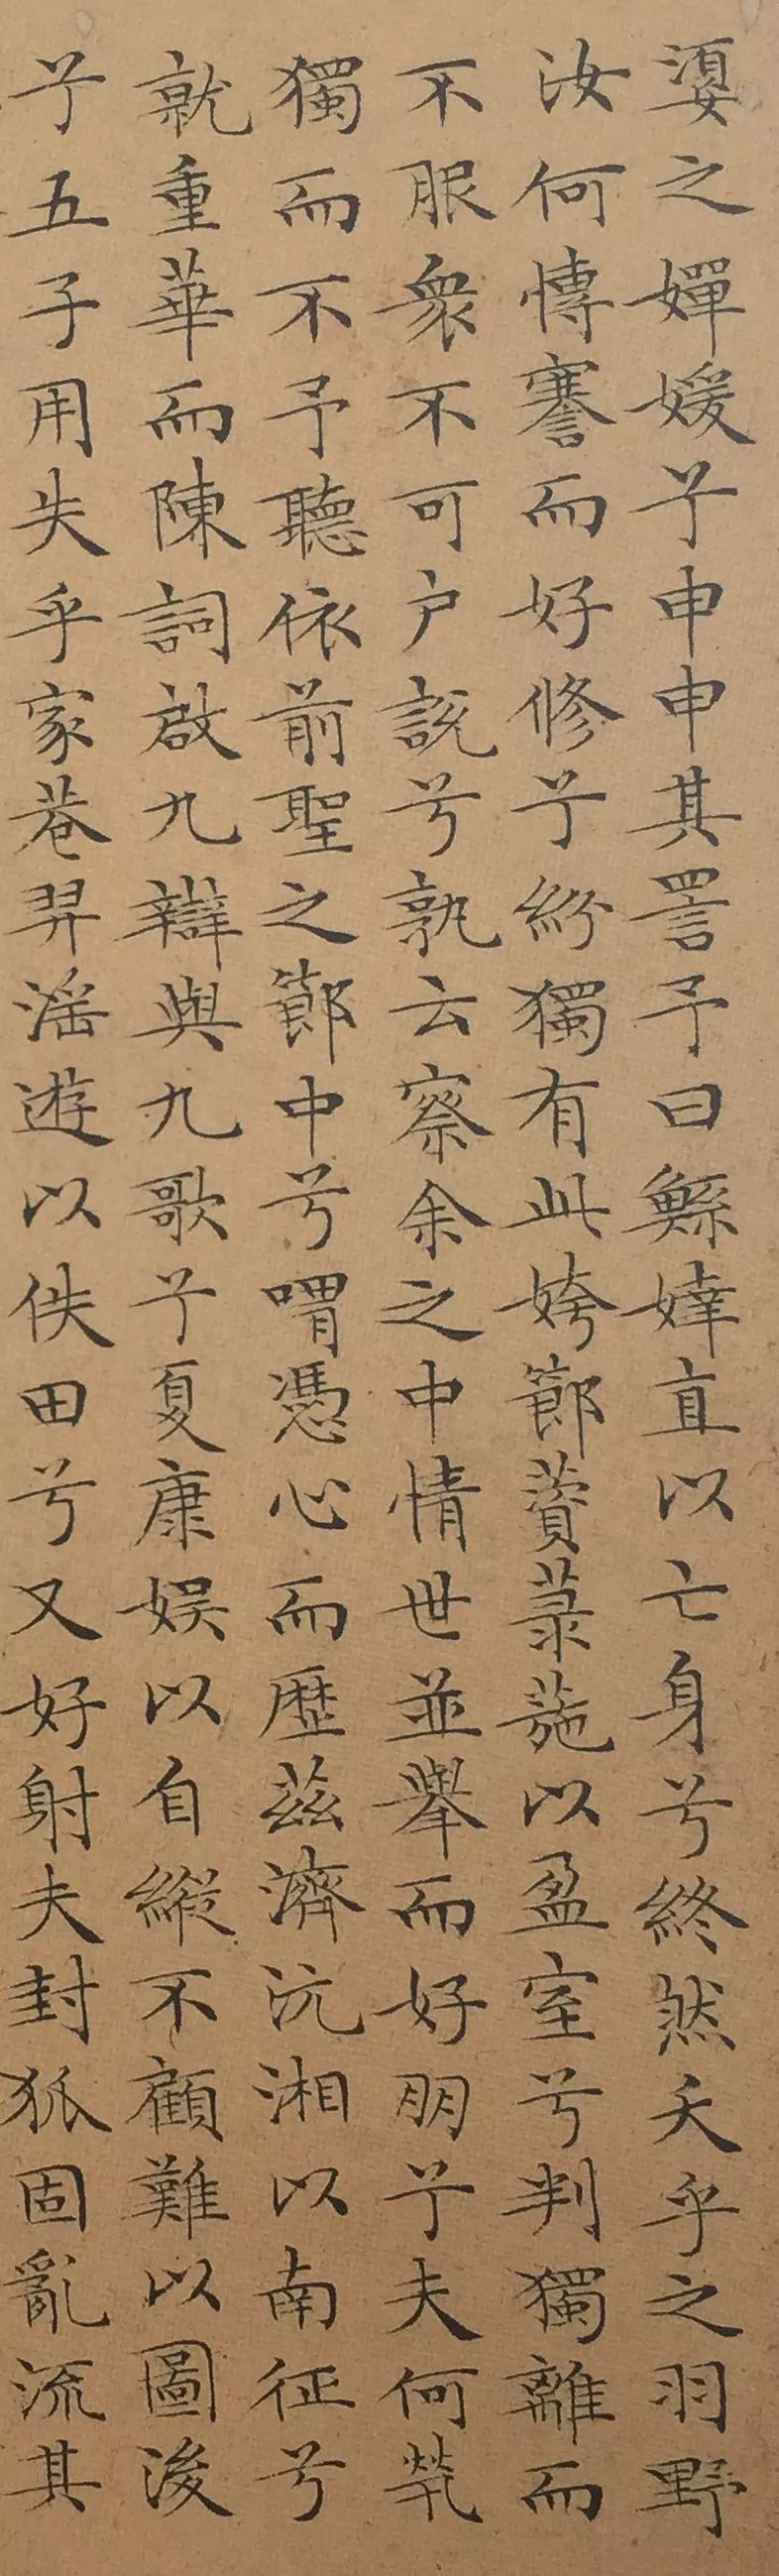 嬃之嬋媛兮申申其詈予曰鯀婞直以亡身兮終然夭乎之羽野
汝何博謇而好修兮紛獨有此姱節薋菉葹以盈室兮判獨離而
不服衆不可户説兮孰云察余之中情世並舉而好朋兮夫何煢
獨而不予聽依前聖之節中兮喟憑心而歷茲濟沅湘以南征兮
就重華而陳詞啟九辯與九歌兮夏康娛以自縱不顧難以圖後
兮五子用失乎家巷羿淫遊以佚田兮又好射夫封狐固亂流其